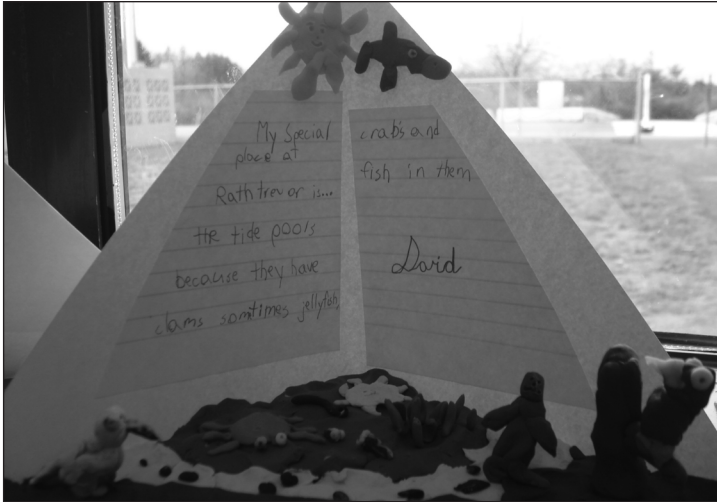 My Special
place at
Rathtrevor is...
the tide pools
because they have
clams somtimes jellyfish,
crabs and
fish in them
David